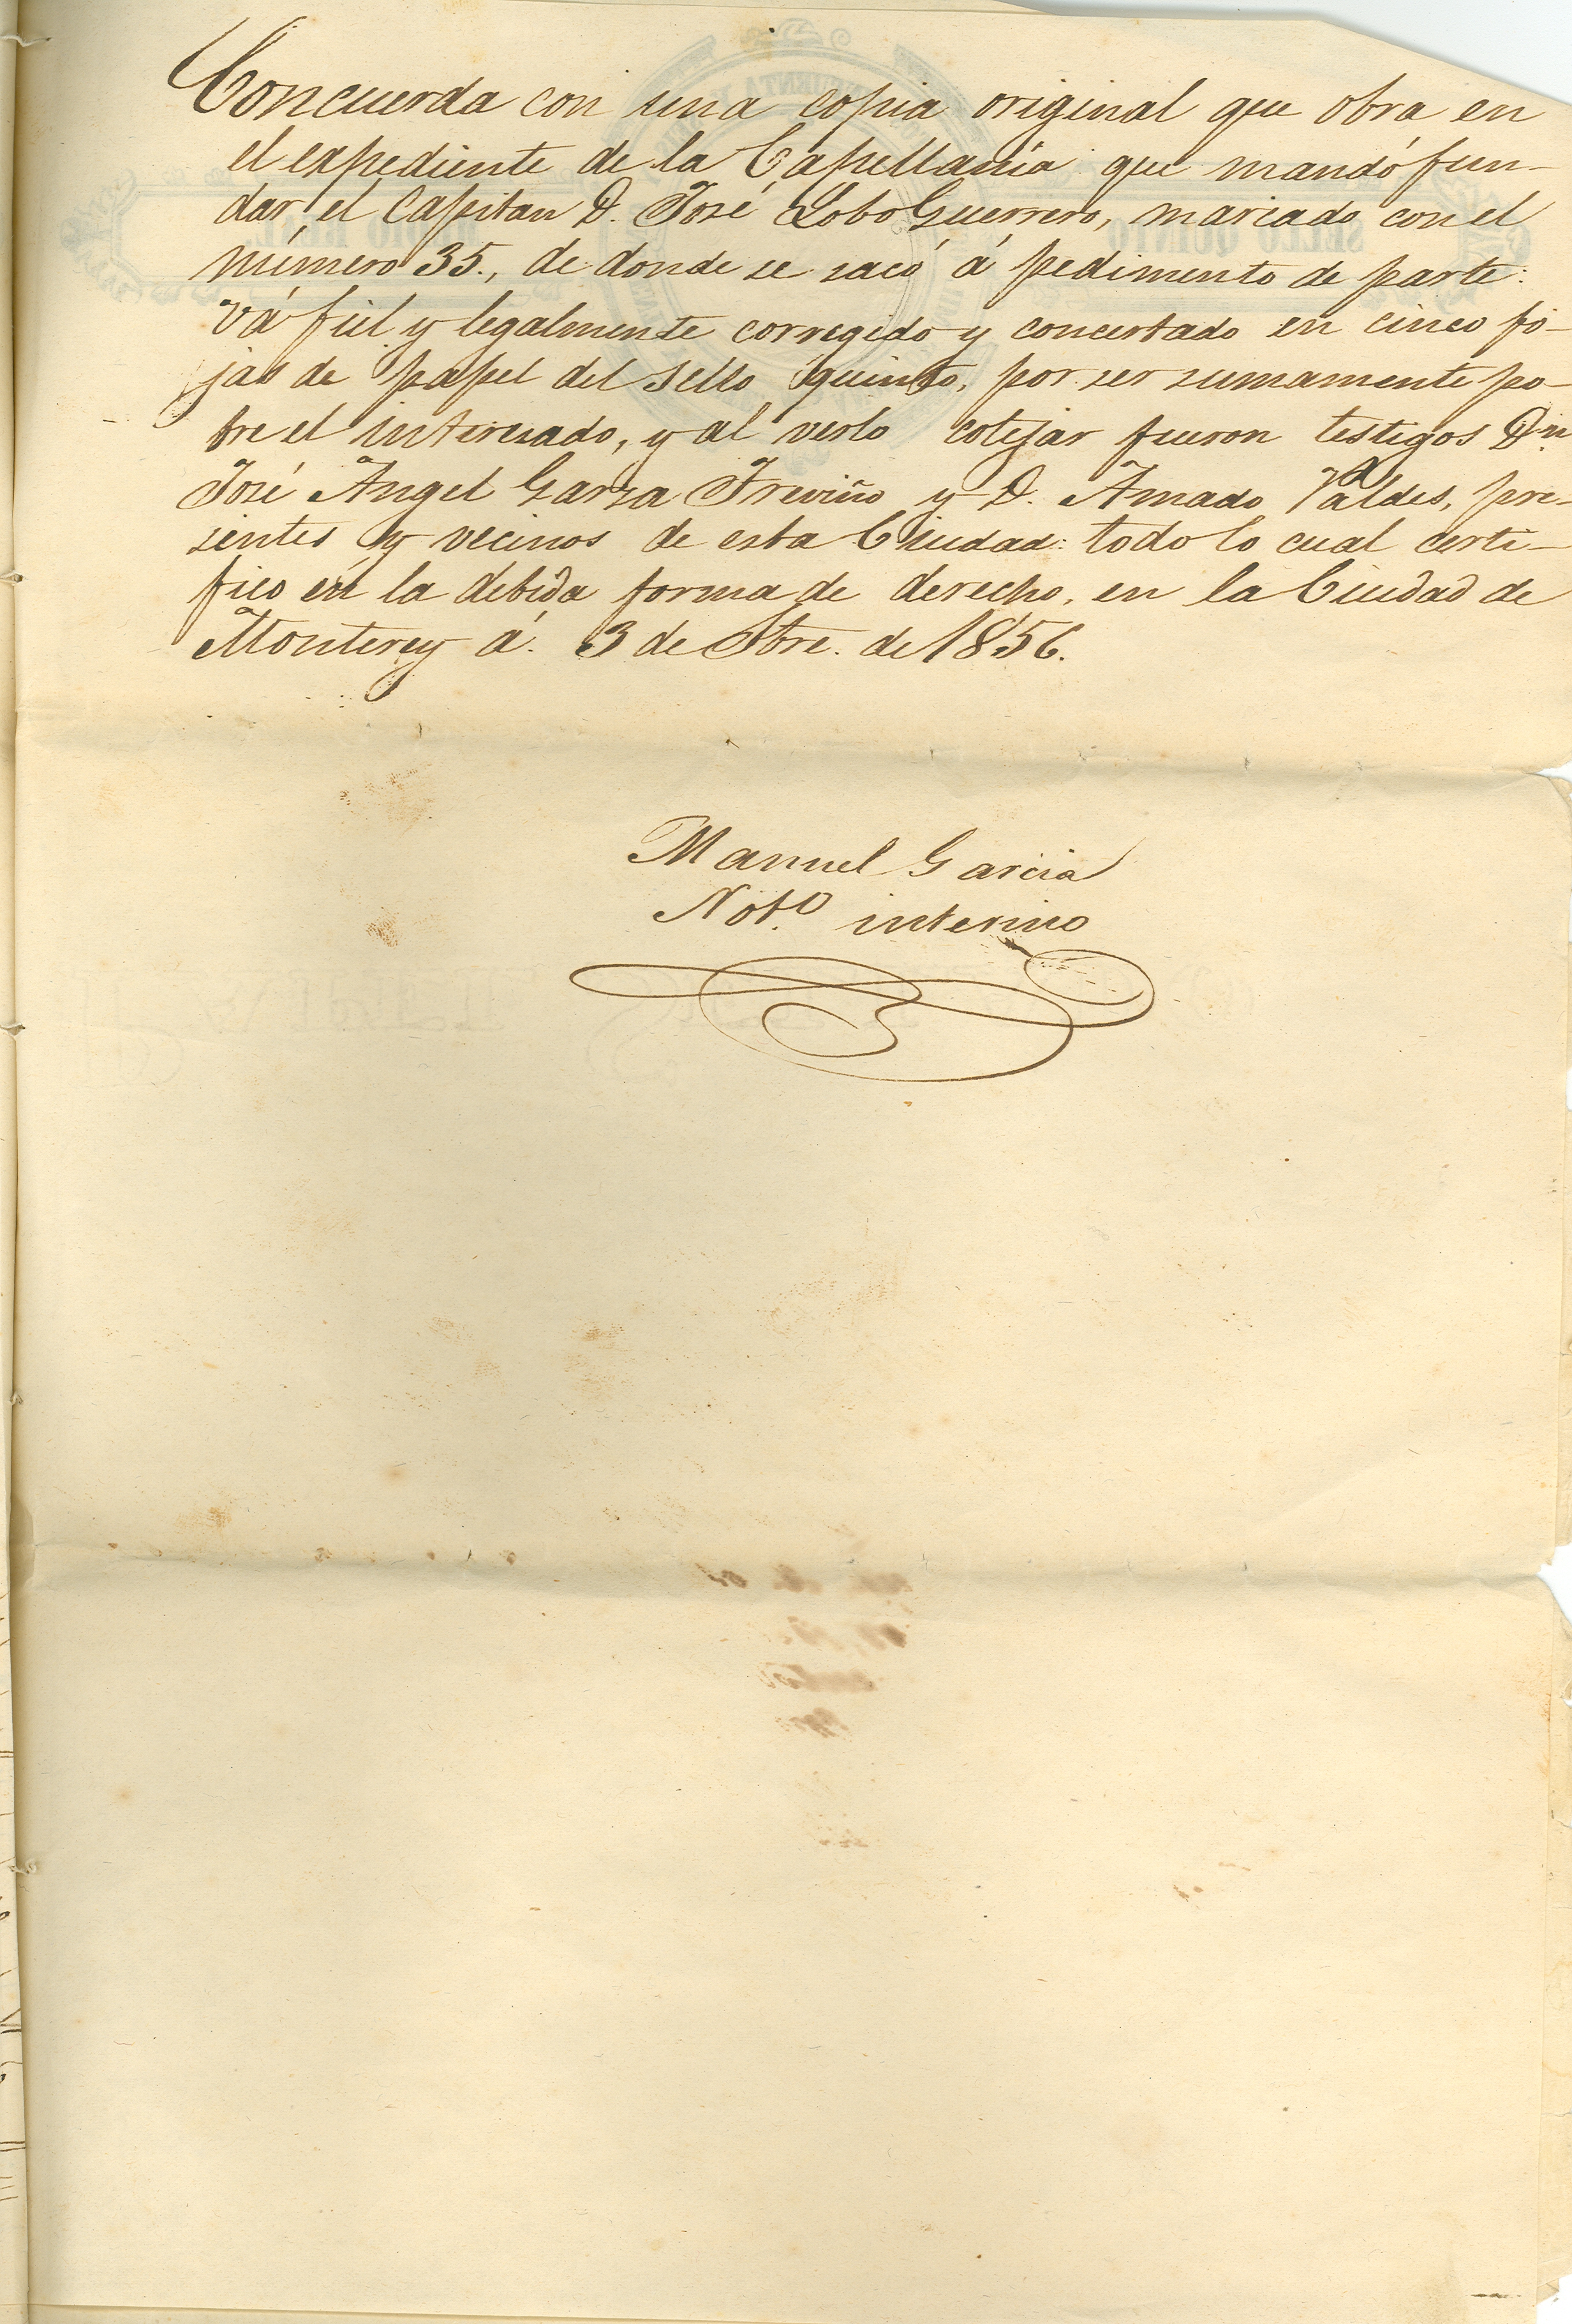 Concuerda con una copia original que obra en
el expediente de la Capellanía que mandó fun-
dar el Capitan D. José Lobo Guerrero, marcado con el
número 35., de donde se sacó á pedimento de parte:
vá fiel y legalmente corregido y concertado en cinco fo-
jas de papel del sello quinto, por ser sumamente po-
bre el interesado, y al verlo cotejar fueron testigos Dn.
José Angel Garza Treviño y D. Amado Valdes, pre-
sentes y vecinos de esta Ciudad: todo lo cual certi-
fico en la debida forma de derecho, en la Ciudad de
Monterey á. 3 de de 1856.
Manuel Garcia
Noto. interino
SELLO QUINTO
MEDIO REAL